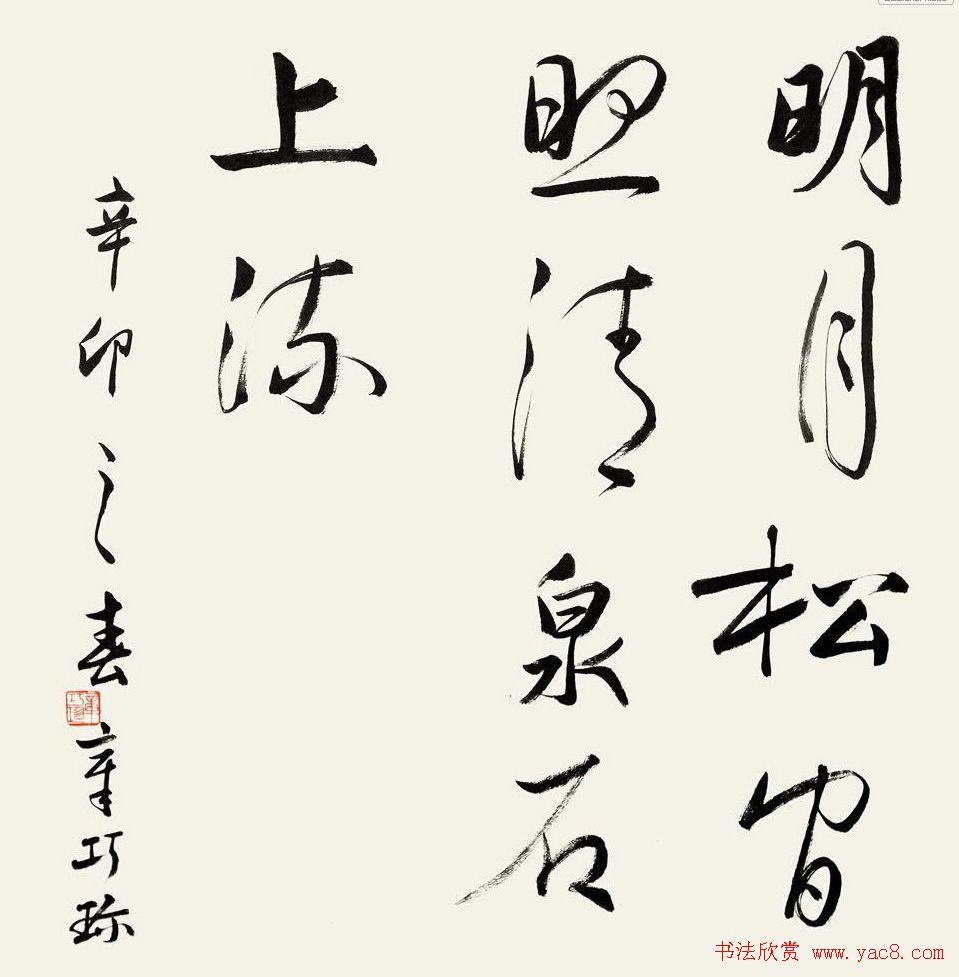 明月松间
照清泉石
上流
辛卯之春章巧珍
书法欣赏 www.yac8.com